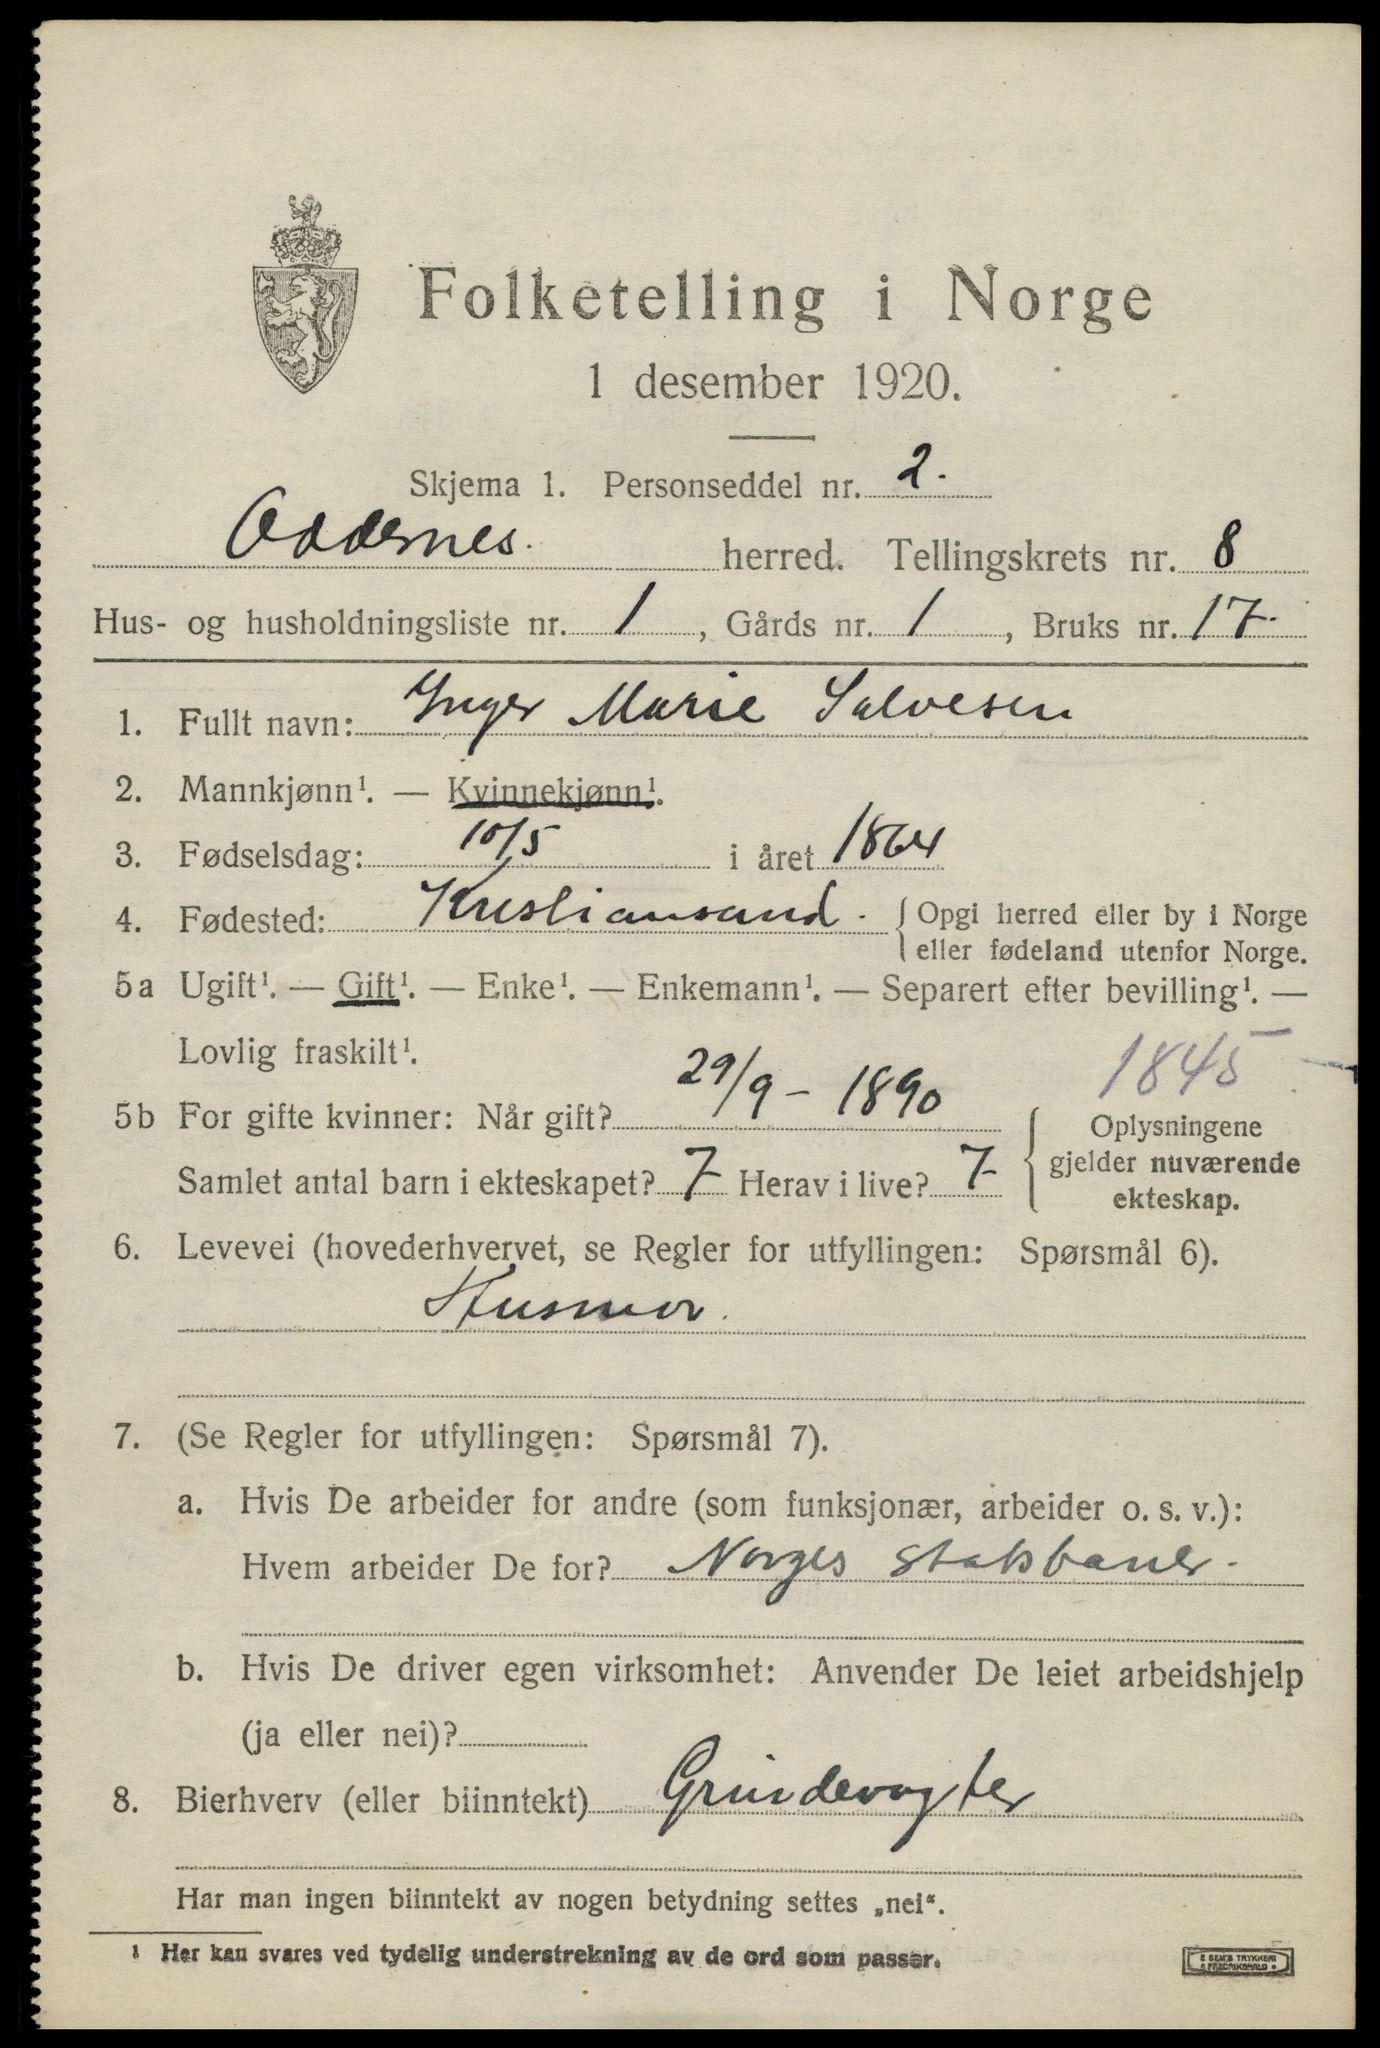 Folketelling i Norge
1 desember 1920.
Skjema 1. Personseddel nr. 2.
Oddernes. herred. Tellingskrets nr. 8
Hus- og husholdningsliste nr. 1, Gårds nr. 1, Bruks nr. 17.
1. Fullt navn: Inger Marie Salvesen
2. Mannkjønn¹. — Kvinnekjønn¹.
3. Fødselsdag: 10/5 i året 1864
4. Fødested: Kristiansand. { Opgi herred eller by i Norge
eller fødeland utenfor Norge.
5a Ugift¹. — Gift¹. — Enke¹. — Enkemann¹. — Separert efter bevilling¹. —
Lovlig fraskilt¹.
1845
5b For gifte kvinner: Når gift? 29/9 - 1890
Samlet antal barn i ekteskapet? 7 Herav i live? 7
{ Oplysningene
gjelder nuværende
ekteskap.
6. Levevei (hovederhvervet, se Regler for utfyllingen: Spørsmål 6).
Husmor.
7. (Se Regler for utfyllingen: Spørsmål 7).
a. Hvis De arbeider for andre (som funksjonær, arbeider o. s. v.):
Hvem arbeider De for? Norges Statsbaner.
b. Hvis De driver egen virksomhet: Anvender De leiet arbeidshjelp
(ja eller nei)?
8. Bierhverv (eller biinntekt) Grindevogter
Har man ingen biinntekt av nogen betydning settes „nei“.
¹ Her kan svares ved tydelig understrekning av de ord som passer.
E SEM'S TRYKKERI
FREDRIKSHALD